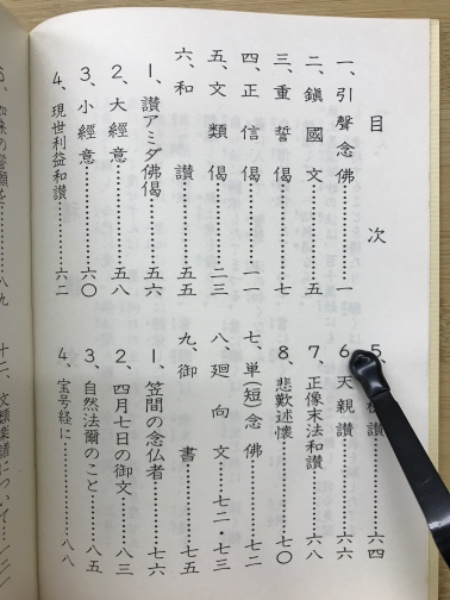 目次
一、引聲念佛……………一
二、鎭國文……………五
三、重誓偈……………七
四、正信偈……………一一
五、文類偈……………二三
六、和讃……………五五
1、讃アミダ佛偈……………五六
2、大經意……………五八
3、小經意……………六〇
4、現世利益和讃……………六二
5、讃……………六四
6、天親讃……………六六
7、正像末法和讃……………六八
8、悲歎述懷……………七〇
七、単(短)念佛……………七二
八、廻向文……………七二・七三
九、御書……………七五
1、笠間の念仏者……………七六
2、四月七日の御文……………八三
3、自然法爾のこと……………八五
4、宝号経に……………八八
5、如来の誓願を……………八九
十二、文類楽譜について……